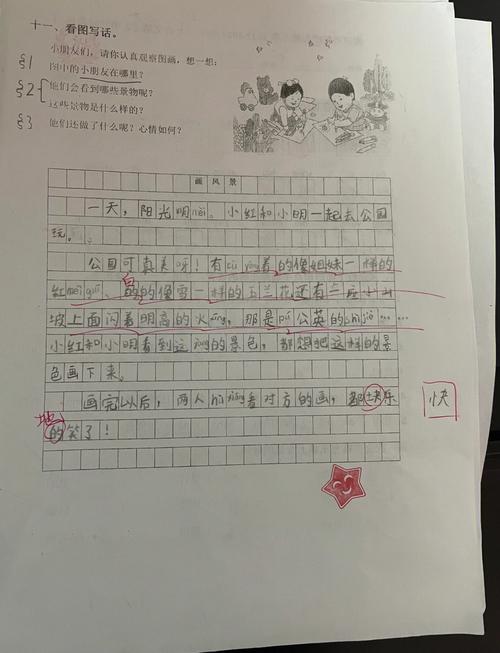 十一、看图写话。
小朋友们，请你认真观察图画，想一想：
ξ1 图中的小朋友在哪里？
ξ2 他们会看到哪些景物呢？
这些景物是什么样的？
ξ3 他们还做了什么呢？心情如何？
画风景
一天，阳光明mèi。小红和小明一起去公园
玩。
公园可真美呀！有cù yōng着的像姐妹一样的
红méi guī、白的像雪一样的玉兰花还有三座小山
坡上面闪着明高的火，那是pú公英的……
小红和小明看到这yàng的景色，都想把这样的景
色画下来。
画完以后，两人hù xiāng看对方的画，都快乐 快
地
的笑了！